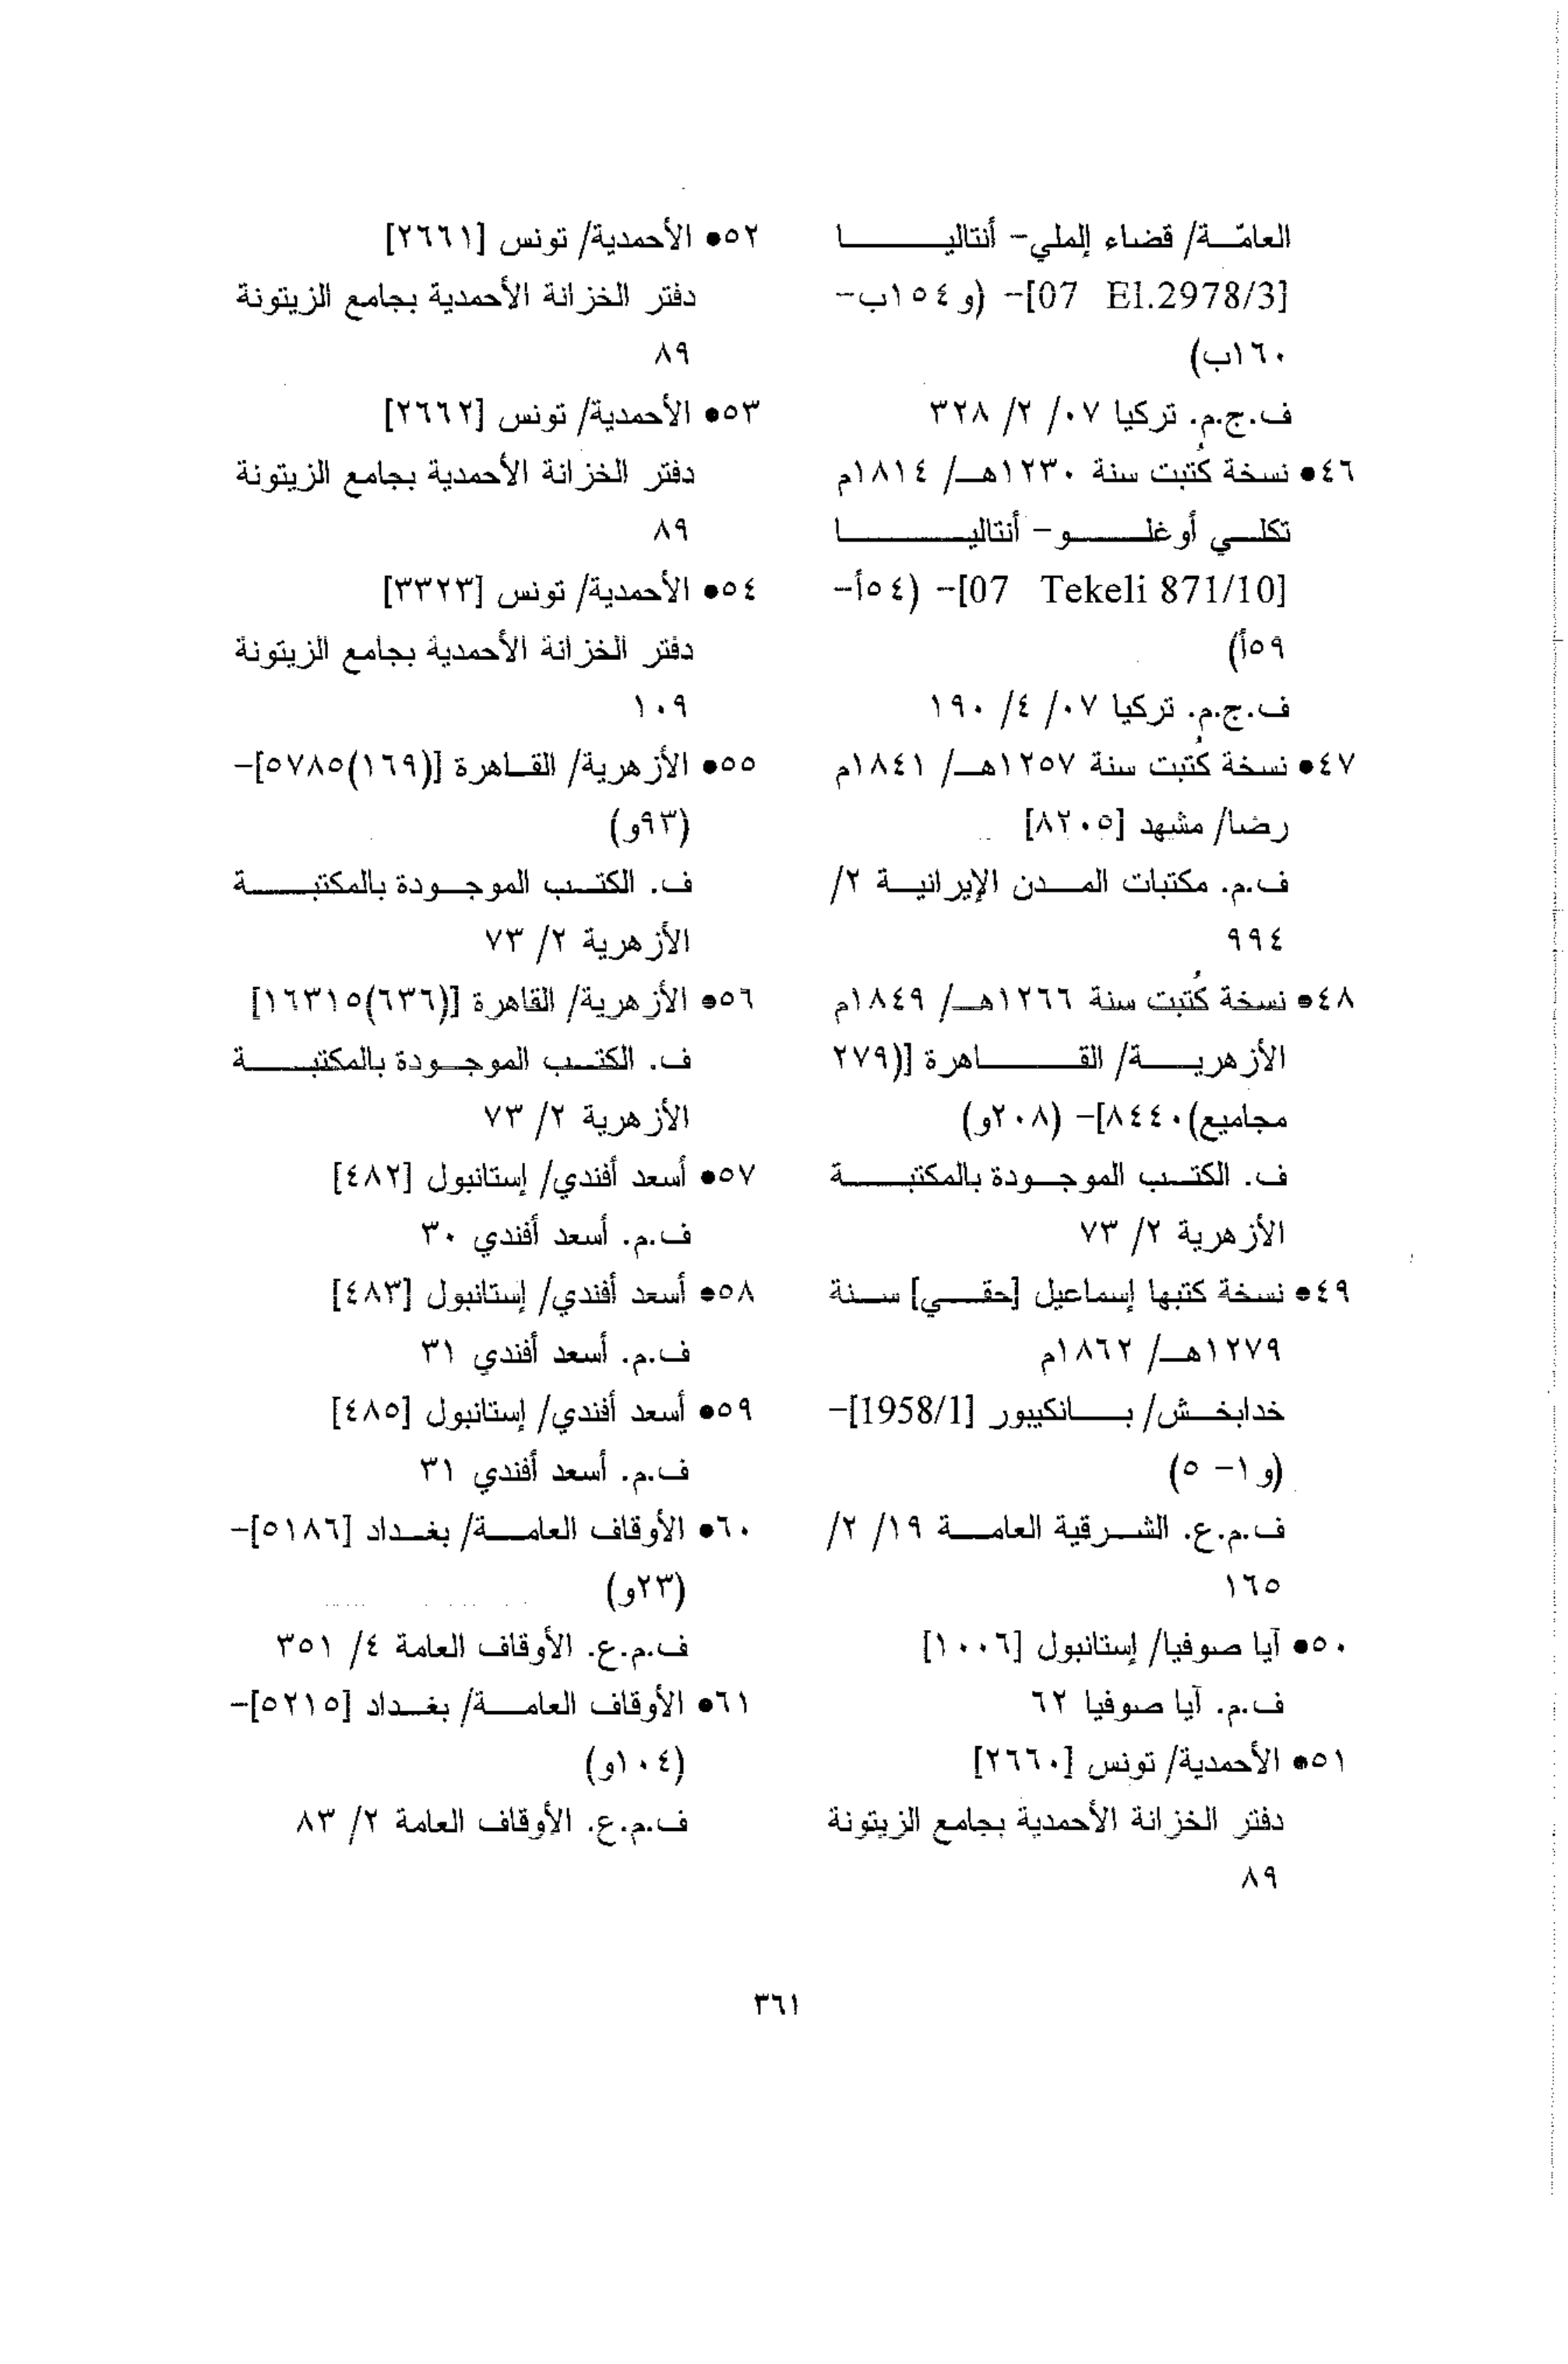 العامّة/ قضاء إلملي- أنتاليا
[07 El.2978/3]- (و١٥٤ب-
١٦٠ب)
ف.ج.م. تركيا ٠٧/ ٢/ ٣٢٨
٤٦• نسخة كُتبت سنة ١٢٣٠هـ/ ١٨١٤م
تكلي أوغلو- أنتاليا
[07 Tekeli 871/10]- (٥٤أ-
٥٩أ)
ف.ج.م. تركيا ٠٧/ ٤/ ١٩٠
٤٧• نسخة كُتبت سنة ١٢٥٧هـ/ ١٨٤١م
رضا/ مشهد [٨٢٠٥]
ف.م. مكتبات المدن الإيرانية ٢/
٩٩٤
٤٨• نسخة كُتبت سنة ١٢٦٦هـ/ ١٨٤٩م
الأزهرية/ القاهرة [(٢٧٩
مجاميع)٨٤٤٠]- (٢٠٨و)
ف. الكتب الموجودة بالمكتبة
الأزهرية ٢/ ٧٣
٤٩• نسخة كتبها إسماعيل [حقي] سنة
١٢٧٩هـ/ ١٨٦٢م
خدابخش/ بانكيبور [1958/1]-
(و١- ٥)
ف.م.ع. الشرقية العامة ١٩/ ٢/
١٦٥
٥٠• آيا صوفيا/ إستانبول [١٠٠٦]
ف.م. آيا صوفيا ٦٢
٥١• الأحمدية/ تونس [٢٦٦٠]
دفتر الخزانة الأحمدية بجامع الزيتونة
٨٩
٥٢• الأحمدية/ تونس [٢٦٦١]
دفتر الخزانة الأحمدية بجامع الزيتونة
٨٩
٥٣• الأحمدية/ تونس [٢٦٦٢]
دفتر الخزانة الأحمدية بجامع الزيتونة
٨٩
٥٤• الأحمدية/ تونس [٣٣٢٣]
دفتر الخزانة الأحمدية بجامع الزيتونة
١٠٩
٥٥• الأزهرية/ القاهرة [(١٦٩)٥٧٨٥]-
(٩٣و)
ف. الكتب الموجودة بالمكتبة
الأزهرية ٢/ ٧٣
٥٦• الأزهرية/ القاهرة [(٦٣٦)١٦٣١٥]
ف. الكتب الموجودة بالمكتبة
الأزهرية ٢/ ٧٣
٥٧• أسعد أفندي/ إستانبول [٤٨٢]
ف.م. أسعد أفندي ٣٠
٥٨• أسعد أفندي/ إستانبول [٤٨٣]
ف.م. أسعد أفندي ٣١
٥٩• أسعد أفندي/ إستانبول [٤٨٥]
ف.م. أسعد أفندي ٣١
٦٠• الأوقاف العامة/ بغداد [٥١٨٦]-
(٢٣و)
ف.م.ع. الأوقاف العامة ٤/ ٣٥١
٦١• الأوقاف العامة/ بغداد [٥٢١٥]-
(١٠٤و)
ف.م.ع. الأوقاف العامة ٢/ ٨٣
٣٦١